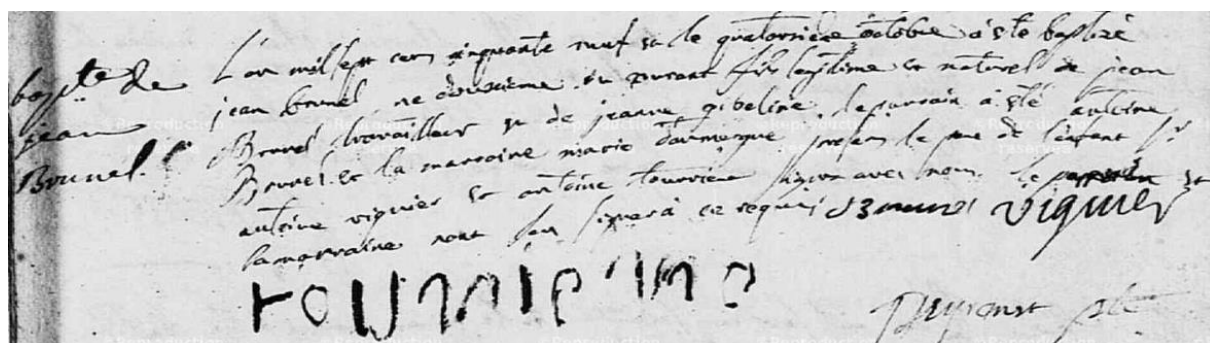 bapte de
jean
Brunel
L'an mil sept cens cinquante neuf et le quatorsieme octobre à été baptizé
jean brunel né douzieme du courant fils legitime et naturel de jean
Brunel travailleur et de jeanne gibeline le parrain à été antoine
Brunel et la marraine marie daumergue presens le pere de l'enfant sr
antoine viguier et antoine tourriere signés avec nous le parrain et
la marraine n'ont seu signer à ce requis Brunel viguier